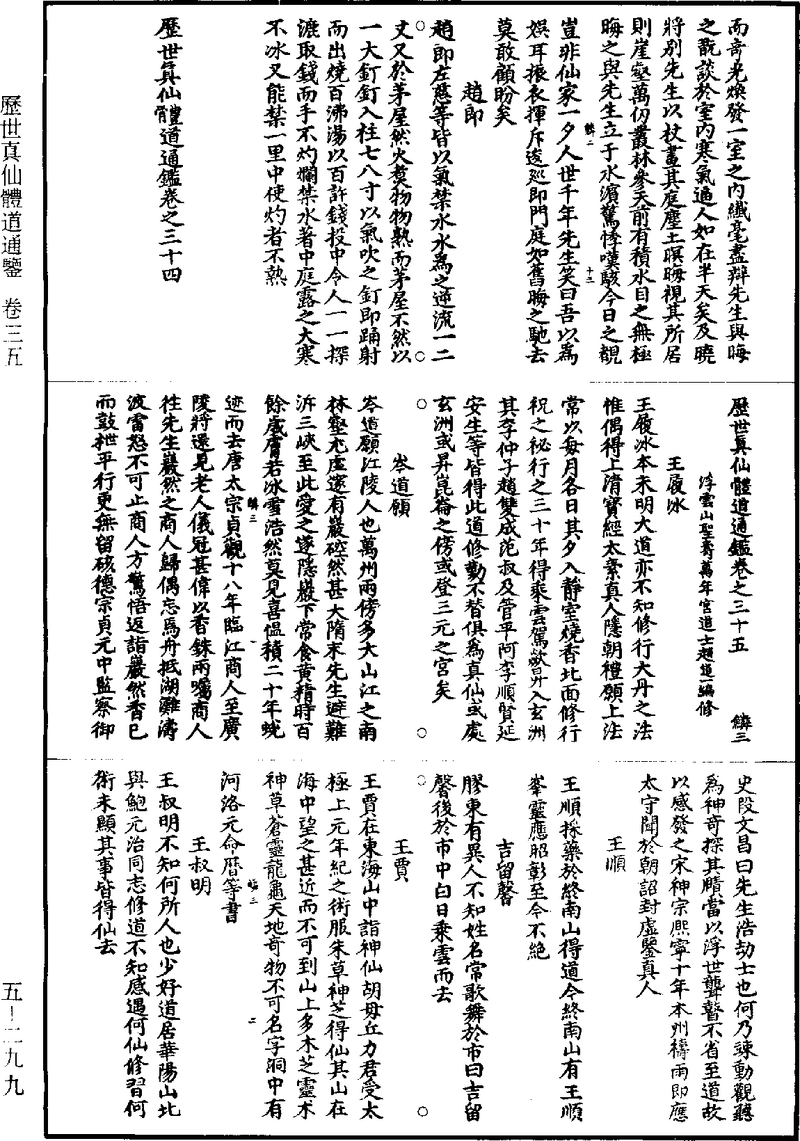 歷世真仙體道通鑒 卷三五
五—二九九
而奇光煥發一室之內纖毫盡辯先生與晦
之翫談於室內寒氣逼人如在半天矣及曉
將別先生以杖畫其庭塵土暝晦視其所居
則崖壑萬仞叢林參天前有積水目之無極
晦之與先生立于水濱驚悸嘆駭今日之覩
豈非仙家一夕人世千年先生笑曰吾以為
娛耳振衣揮斥逡巡即門庭如舊晦之馳去
莫敢顧盼矣
趙即
趙即左慈等皆以氣禁水水為之逆流一二
丈又於茅屋然火煑物物熟而茅屋不然以
一大釘釘入柱七八寸以氣吹之釘即踊射
而出燒百沸湯以百許錢投中令人一一探
漉取錢而手不灼爛禁水著中庭露之大寒
不冰又能禁一里中使灼者不熟
歷世真仙體道通鑑卷之三十四
歷世真仙體道通鑑卷之三十五 鱗三
浮雲山聖壽萬年宮道士趙道一編修
王履冰
王履冰本未明大道亦不知修行大丹之法
惟偶得上清寶經太素真人隱朝禮願上法
常以每月各日其夕入靜室燒香北面修行
祝之秘行之三十年得乘雲駕歘昇入玄洲
其李仲子趙雙成范叔及管平阿李順賢延
安生等皆得此道修勤不替俱為真仙或處
玄洲或昇崑崙之傍或登三元之宮矣
岑道願
岑道願江陵人也萬州兩傍多大山江之南
林壑尤虛邃有巖硿然甚大隋末先生避難
泝三峽至此愛之遂隱巖下常食黃精時百
餘歲膚若冰雪浩然莫見喜慍積二十年蛻
迹而去唐太宗貞觀十八年臨江商人至廣
陵將還見老人儀冠甚偉以香銖兩囑商人
徃先生巖然之商人歸偶忘焉舟抵湖灘濤
波雷怒不可止商人方驚悟返詣巖然香已
而鼓枻平行更無留硋德宗貞元中監察御
史段文昌曰先生浩劫士也何乃竦動觀聽
為神奇探其賾當以浮世聾瞽不省至道故
以感發之宋神宗熙寧十年本州禱雨即應
太守聞於朝詔封虛鑒真人
王順
王順採藥於終南山得道今終南山有王順
峯靈應昭彰至今不絕
吉留馨
膠東有異人不知姓名常歌舞於市曰吉留
馨後於市中白日乘雲而去
王賈
王賈在東海山中詣神仙胡母丘力君受太
極上元年紀之術服朱草神芝得仙其山在
海中望之甚近而不可到山上多木芝靈朮
神草蒼靈龍龜天地奇物不可名字洞中有
河洛元命曆等書
王叔明
王叔明不知何所人也少好道居華陽山北
與鮑元治同志修道不知感遇何仙修習何
術未顯其事皆得仙去